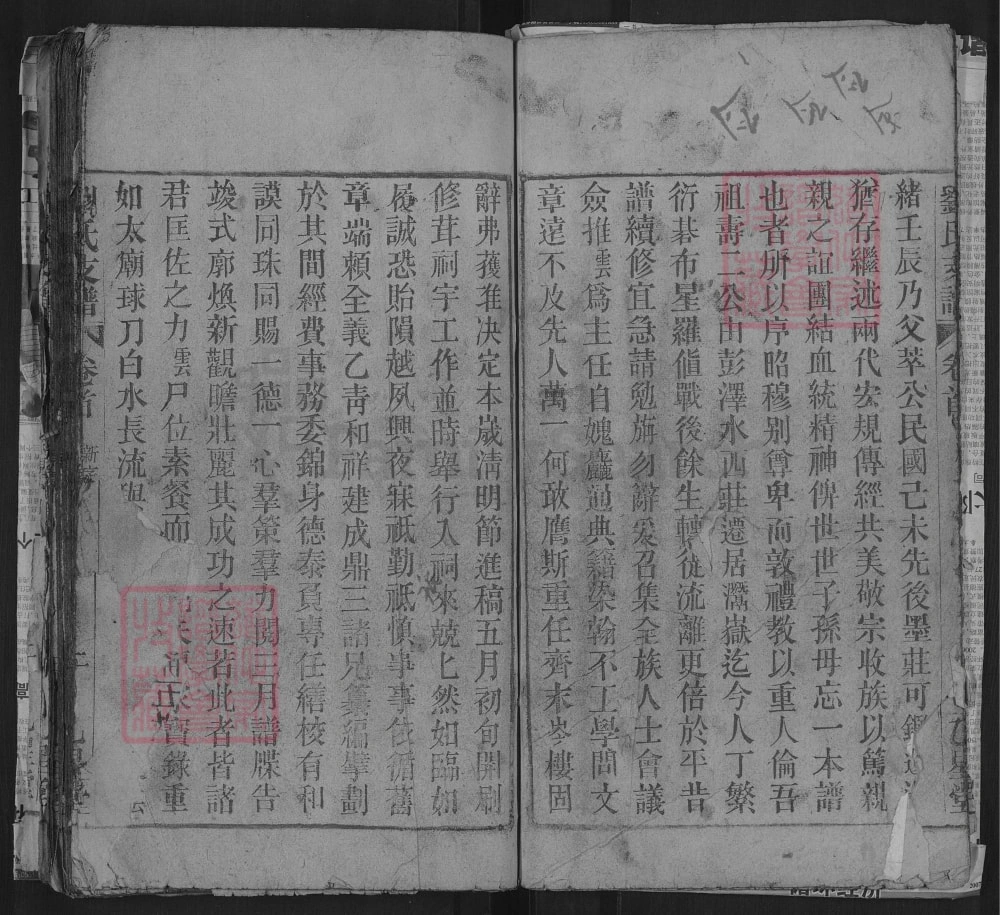 緒壬辰乃父萃公民國己未先後墨莊可鑑
猶存繼述兩代宏規傳經共美敬宗收族以篤親
親之誼團結血統精神俾世世子孫毋忘一本譜
也者所以序昭穆別尊卑而敦禮教以重人倫吾
祖壽二公由彭澤水西莊遷居灊嶽迄今人丁繁
衍碁布星羅值戰後餘生轉徙流離更倍於平昔
譜續修宜急請勉旃勿辭爰召集全族人士會議
僉推雲為主任自媿麤通典籍染翰不工學問文
章遠不及先人萬一何敢膺斯重任齊末岑樓固
辭弗獲准决定本歲清明節進稿五月初旬開刷
修茸祠宇工作並時舉行入祠來兢匕然如臨如
履誠恐貽隕越夙興夜寐祗勤祗慎事事依循舊
章端賴全義乙青和祥建成鼎三諸兄纂編擘劃
於其間經費事務委錦身德泰負專任繕校有和
謨同珠同賜一德一心羣策羣力閱三月譜牒告
竣式廓煥新觀瞻壯麗其成功之速若此者皆諸
君匡佐之力雲尸位素餐而
寶錄重
如太廟球刀白水長流與
劉氏支譜
卷首